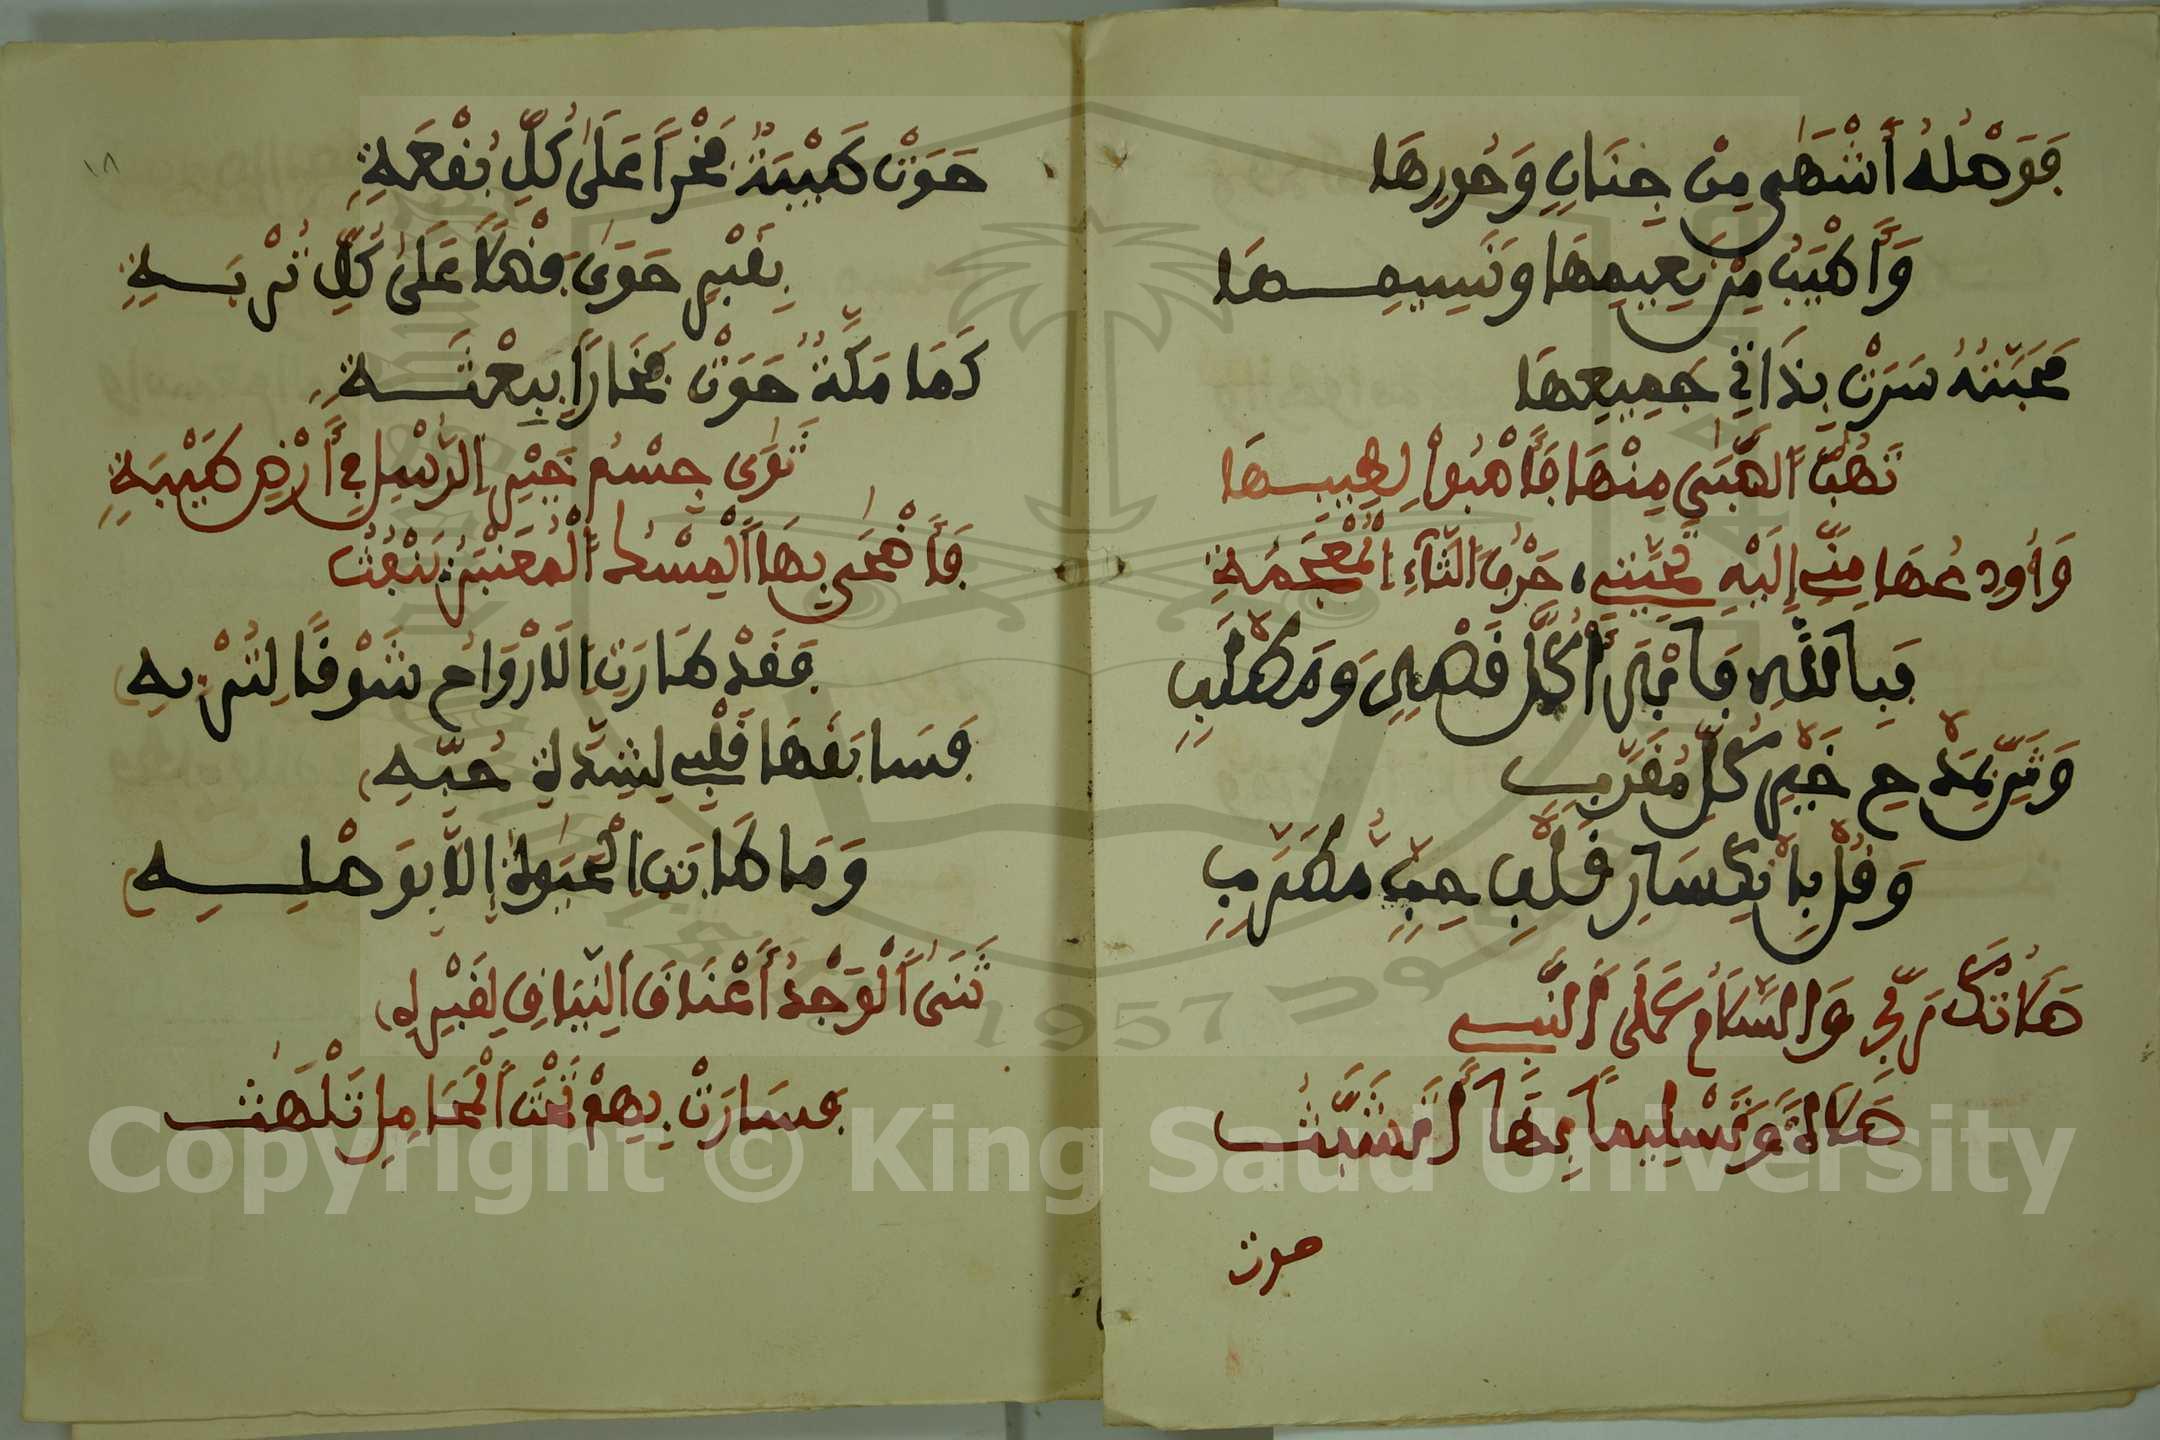 فَوَصْلُهُ أَشْهَىٰ مِنْ جِنَانٍ وَحُورِهَا
وَأَطْيَبُ مِنْ نَعِيمِهَا وَنَسِيمِهَا
مَحَبَّتُهُ سَرَتْ بِذَاتِي جَمِيعِهَا
تَهُبُّ الصَّبَا مِنْهَا فَأَصْبُوا لِطِيبِهَا
وَأُودِعُهَا مِنِّي إِلَيْهِ تَحِيَّتِي حَرْفُ الثَّاءِ الْمُعْجَمَةِ
فَبِاللَّهِ يَا كُلَّ قَصْدِي وَمَطْلَبِ
وَثَنِّ بِمَدْحِ خَيْرِ كُلِّ مُقَرَّبِ
وَقُلْ بِانْكِسَارِ قَلْبِ حِبٍّ
صَلَاتُكَ رَبِّي وَالسَّلَامُ عَلَى النَّبِي
صَلَاةً وَتَسْلِيماً بِهَا أَتَشَبَّثُ
حوت
١٨
حَوَتْ طَيْبَةٌ فَخْراً عَلَىٰ كُلِّ بُقْعَةِ
بِقَبْرٍ حَوَىٰ فَضْلاً عَلَىٰ كُلِّ تُرْبَةِ
كَمَا مَكَّةٌ حَوَتْ فَخَاراً بِبِعْثَةِ
ثَوَىٰ جِسْمُ خَيْرِ الرُّسْلِ فِي أَرْضِ طَيْبَةِ
فَأَضْحَىٰ بِهَا الْمِسْكُ الْمُعَنْبَرُ يَنْفُثُ
فَقَدْ طَارَتِ الْأَرْوَاحُ شَوْقاً لِتُرْبِهِ
فَسَابَقَهَا قَلْبِي لِشِدَّةِ حُبِّهِ
وَمَا طَابَتِ الْحَيَوٰةُ إِلَّا بِوَصْلِهِ
ثَنَىٰ الْوَجْدُ أَعْنَاقَ النِّيَاقِ لِقَبْرِهِ
فَسَارَتْ بِهِمْ تَحْتَ الْمَحَامِلِ تَلْهَثُ
Copyright © King Saud University
1957